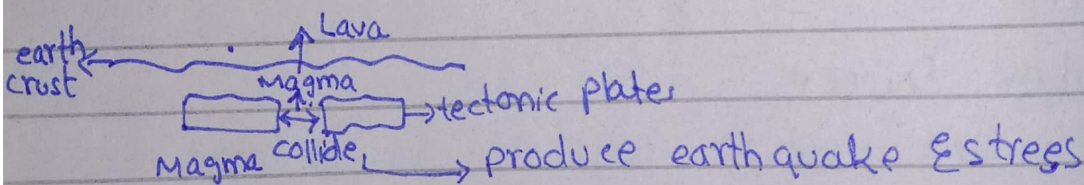 Lava
earth
crust
Magma
tectonic plates
Magma collide
produce earthquake & stress